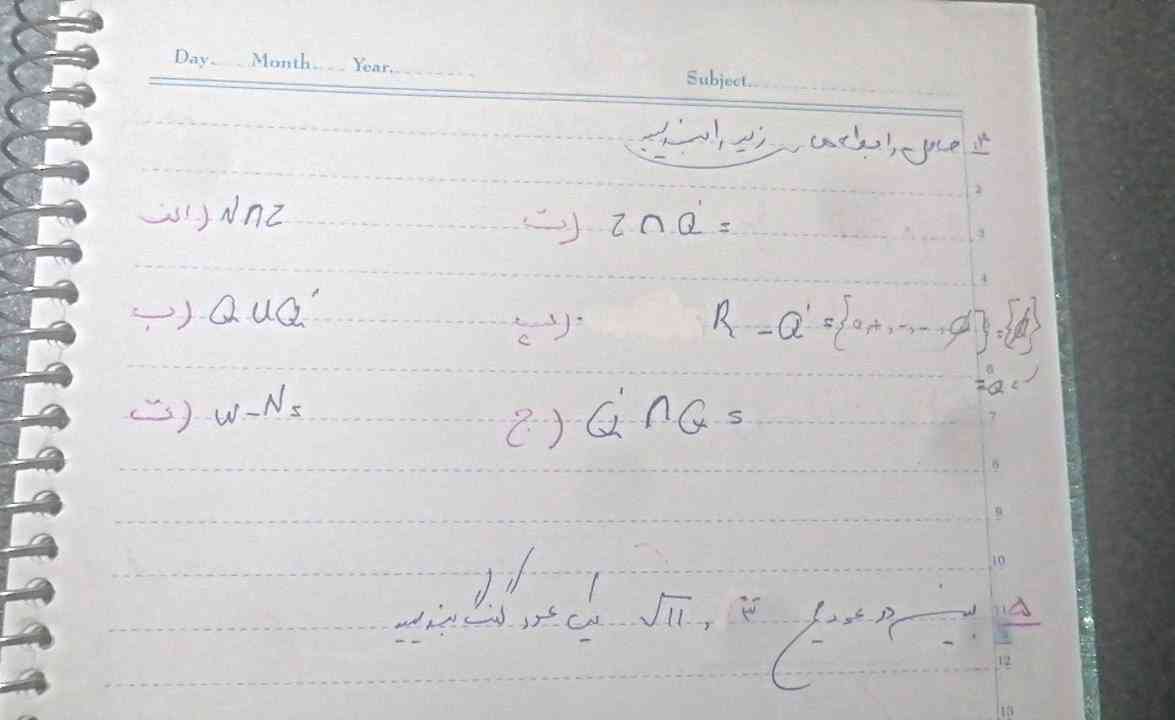 Day..... Month..... Year.............
Subject.............
۴. حاصل رابطه های زیر را بنویسید
الف) N∩Z
ت) Z∩Q' =
ب) Q∪Q'
R - Q' =
ث) W-N =
ج) Q'∩Q =
۵ بین دو عدد ۳ و √11 یک عدد گنگ بنویسید
2
3
4
6
7
8
9
10
11
12
13